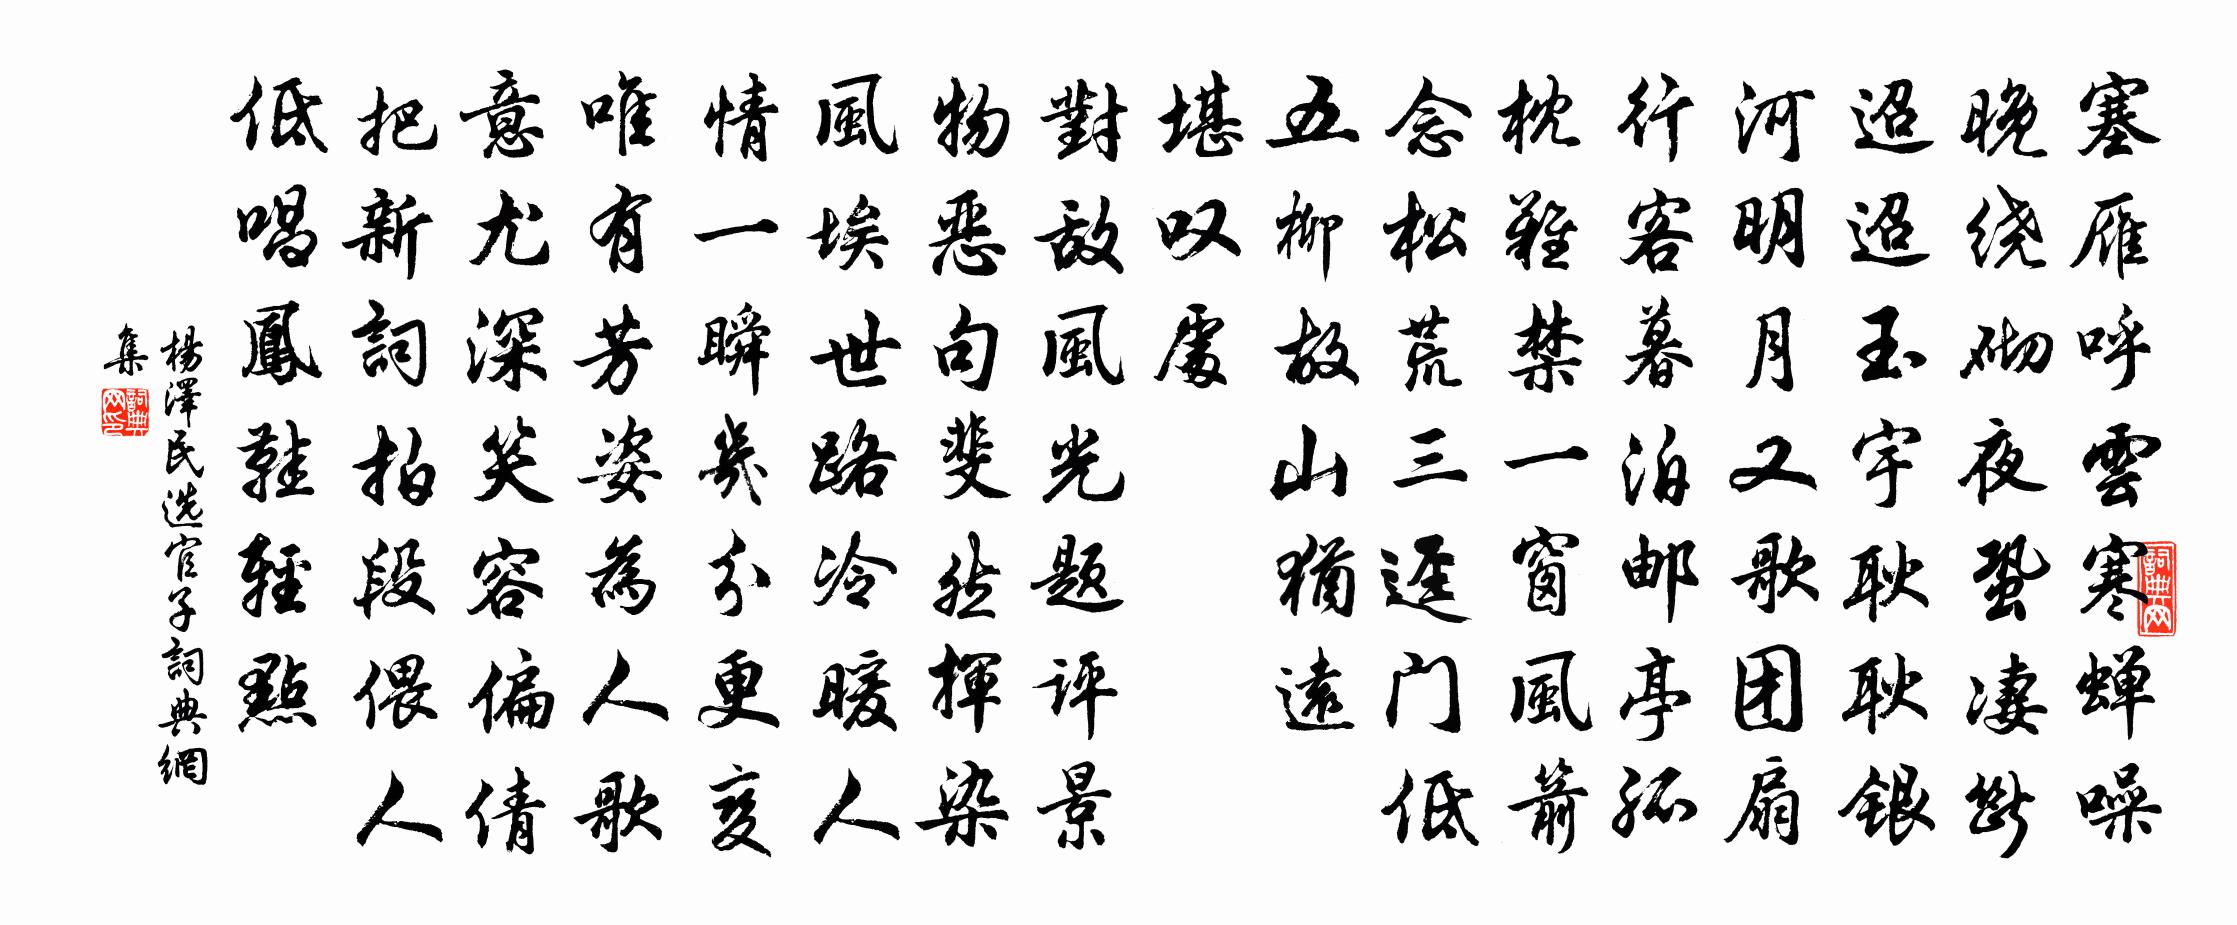 塞雁呼雲寒蝉噪
晚绕砌夜蛩凄断
迢迢玉宇耿耿银
河明月又歌团扇
行客暮泊邮亭孤
枕難禁一窗風箭
念松荒三逕门低
五柳故山猶遠
堪叹處
對敌風光题评景
物恶句斐然揮染
風埃世路冷暖人
情一瞬幾分更变
唯有芳姿為人歌
意尤深笑容偏倩
把新詞拍段偎人
低唱鳳鞋輕點
楊澤民选官子詞典網
集
詞典网
詞典网印